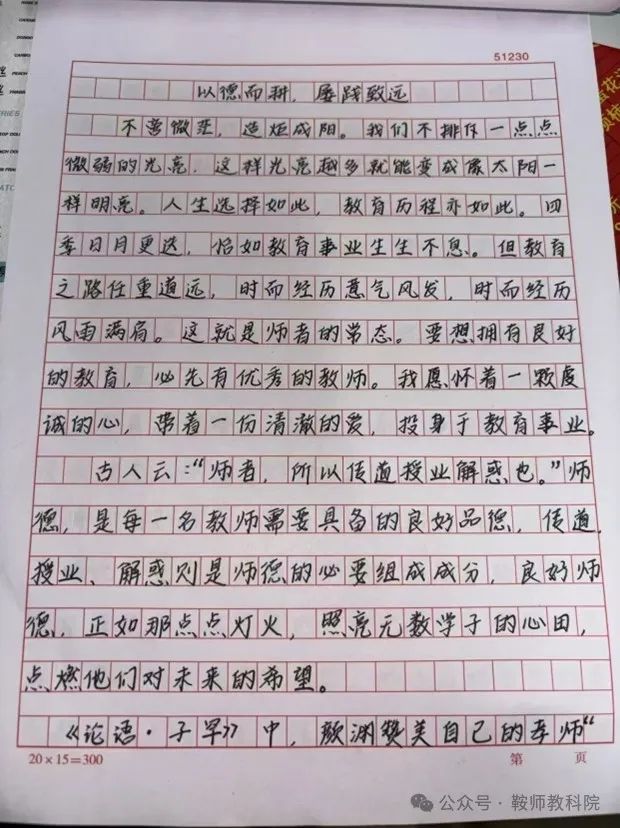 51230
以德而耕，屡践致远
不弃微茫，造炬成阳。我们不排斥一点点
微弱的光亮，这样光亮越多就能变成像太阳一
样明亮。人生选择如此，教育历程亦如此。四
季日月更迭，恰如教育事业生生不息。但教育
之路任重道远，时而经历意气风发，时而经历
风雨满肩。这就是师者的常态。要想拥有良好
的教育，必先有优秀的教师。我愿怀着一颗虔
诚的心，带着一份清澈的爱，投身于教育事业。
古人云：“师者，所以传道授业解惑也。”师
德，是每一名教师需要具备的良好品德，传道，
授业、解惑则是师德的必要组成成分，良好师
德，正如那点点灯火，照亮无数学子的心田，
点燃他们对未来的希望。
《论语·子罕》中，颜渊赞美自己的老师“
20×15=300
第 页
公众号·鞍师教科院